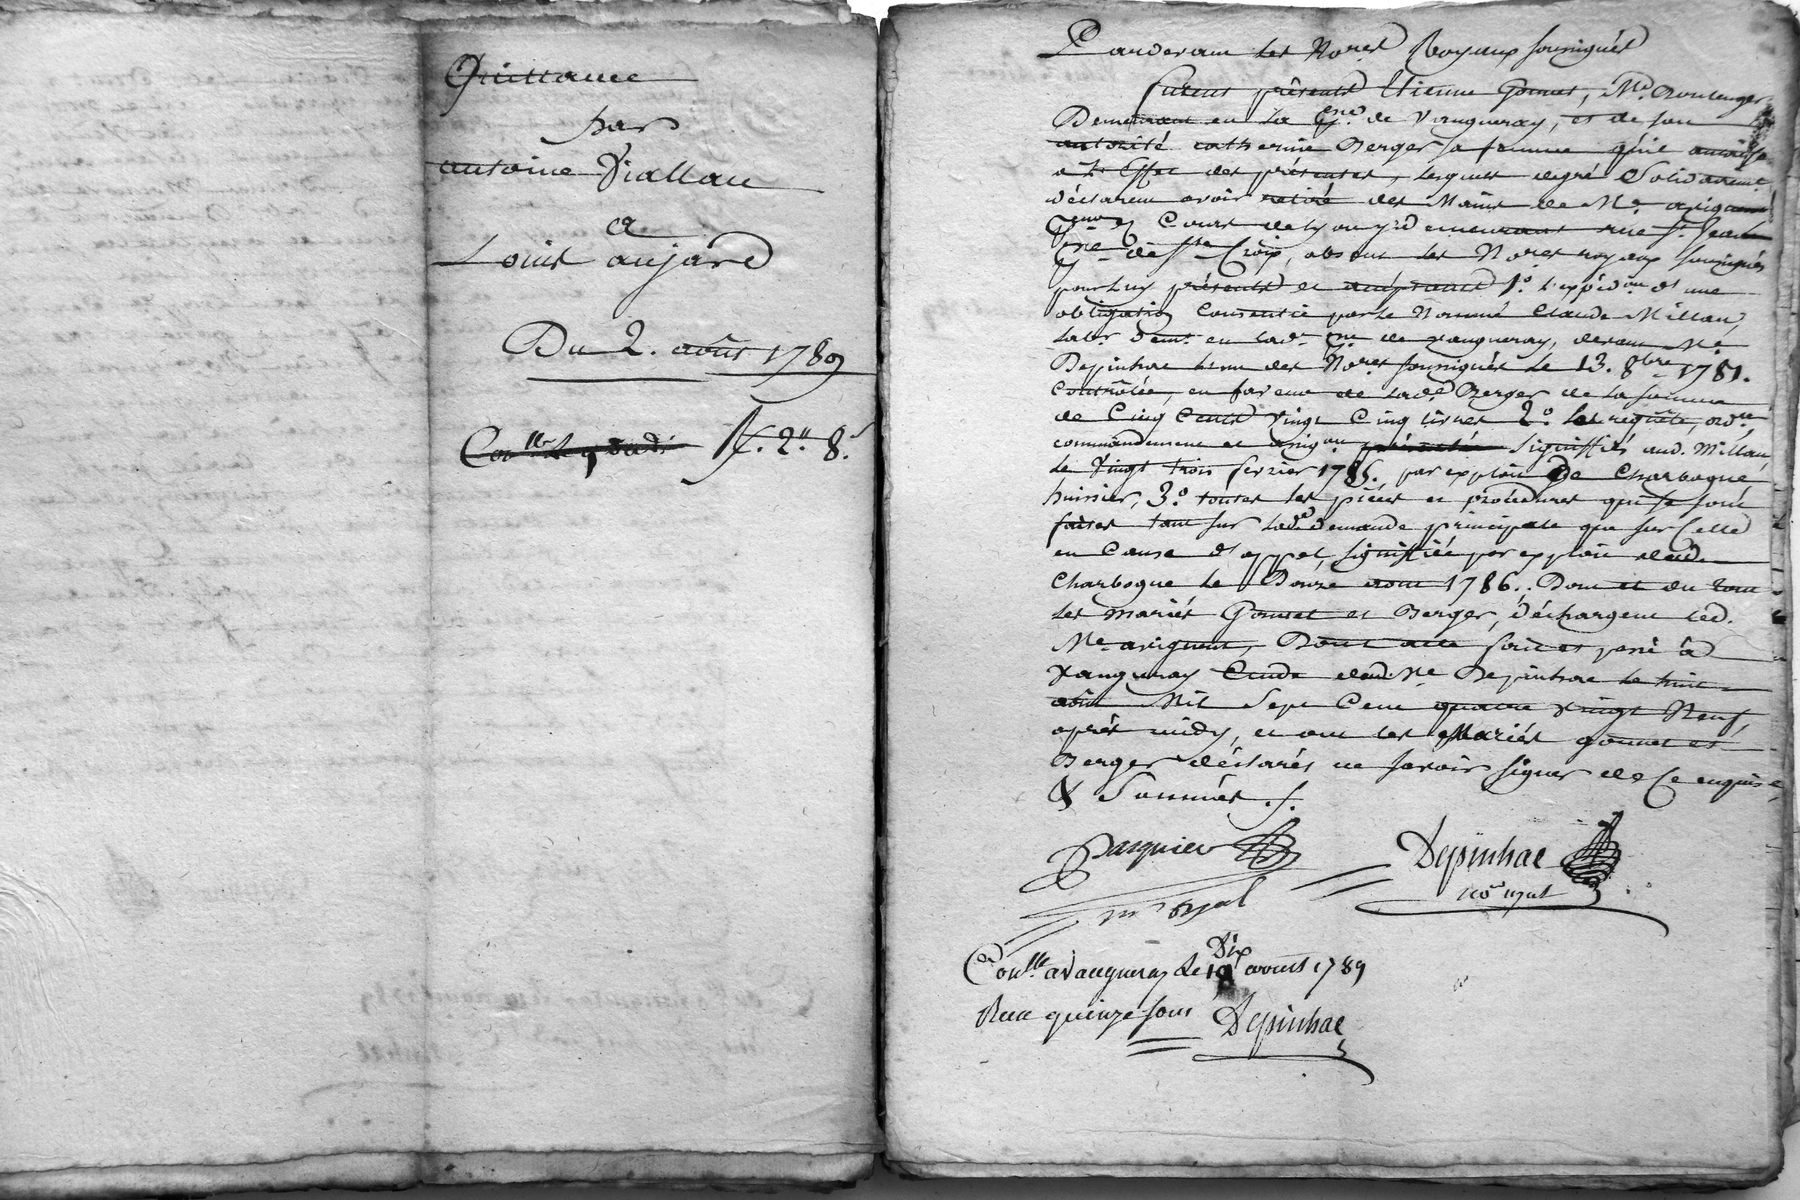 Quittance
par
antoine Viallan
a
Louis aujard
Du 2. août 1789
Con.lle J.t. 2.ll 8.s
Pardevant les No.res Royaux soussignés
furent présents Etienne Gonnet, M.d Boulenger
Demeurant en la p.sse de Vaugneray, et de son
autorité catherine Berger sa femme qu'il autorise
a L'Effet des présentes, lesquels degré Solidairem.t
déclarent avoir retiré des Mains de M.e avignent
es Cours de Lyon y demeurant rue S.t Jean
p.sse de S.te Croix, absent les No.res royaux soussignés
pour luy présents et acceptants 1.o L'expéd.on d'une
obligation Consentie par le Nommé Claude Millan,
lab.r dem.t en lad.e p.sse de vaugneray, devant M.e
Depinhac l'un des No.res soussignés le 13. 8.bre 1781.
Controllée, en faveur de lad.e Berger de la somme
de Cinq Cents vingt Cinq livres 2.o Les requête, ord.ce,
commandement et assig.on signiffiés aud. Millan,
le Vingt trois fevrier 1785. par exploit de Charbogne
huissier, 3.o toutes les pièces et procédures qui se sont
faites tant sur lad.e demande principale que sur Celle
en Cause d'appel, signiffiée par exploit dud.
Charbogne le Douze aout 1786. Dont et du tout
les mariés Gonnet et Berger, déchargent led.
M.e avignent, Dont acte fait et passé à
Vaugneray Etude dud. M.e Depinhac le huit
août Mil Sept Cent quatre vingt Neuf,
après midy, et ont les Mariés gonnet et
Berger déclarés ne savoir signer de Ce enquis
& Sommés ./.
Pasquier
n.re royal
Depinhac
no.re royal
Con.lle a Vaugneray le Dix aoust 1789
Reçu quinze sous Depinhac